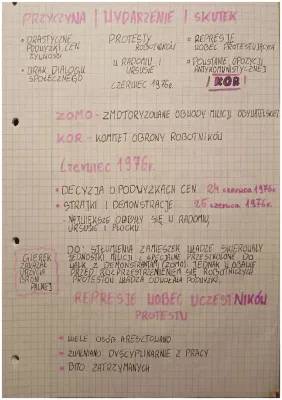 PRZYCZYNA | WYDARZENIE | SKUTEK
• DRASTYCZNE PODWYŻKI CEN ŻYWNOŚCI
• BRAK DIALOGU SPOŁECZNEGO
PROTESTY ROBOTNIKÓW
W RADOMIU I URSUSIE
CZERWIEC 1976r.
• REPRESJE WOBEC PROTESTUJĄCYCH
• POWSTANIE OPOZYCJI ANTYKOMUNISTYCZNEJ
KOR
ZOMO - ZMOTORYZOWANE ODWODY MILICJI OBYWATELSKIEJ
KOR - KOMITET OBRONY ROBOTNIKÓW
Czerwiec 1976r.
• DECYZJA O PODWYŻKACH CEN 24 czerwca 1976r
• STRAJKI I DEMONSTRACJE 25 czerwca 1976r.
- NAJWIĘKSZE ODBYŁY SIĘ W RADOMIU,
URSUSIE I PŁOCKU
GIEREK
ZAKAZAŁ
UŻYCIA
BRONI
PALNEJ
DO STŁUMIENIA ZAMIESZEK WŁADZE SKIEROWAŁY
JEDNOSTKI MILICJI I SPECJALNIE PRZESZKOLONE DO
WALK Z DEMONSTRANTAMI (ZOMO). JEDNAK W OBAWIE
PRZED ROZPRZESTRZENIENIEM SIĘ ROBOTNICZYCH
PROTESTÓW WŁADZA ODWOŁAŁA PODWYŻKI.
REPRESJE WOBEC UCZESTNIKÓW
PROTESTU
• WIELE OSÓB ARESZTOWANO
• ZWALNIANO DYSCYPLINARNIE Z PRACY
• BITO ZATRZYMANYCH